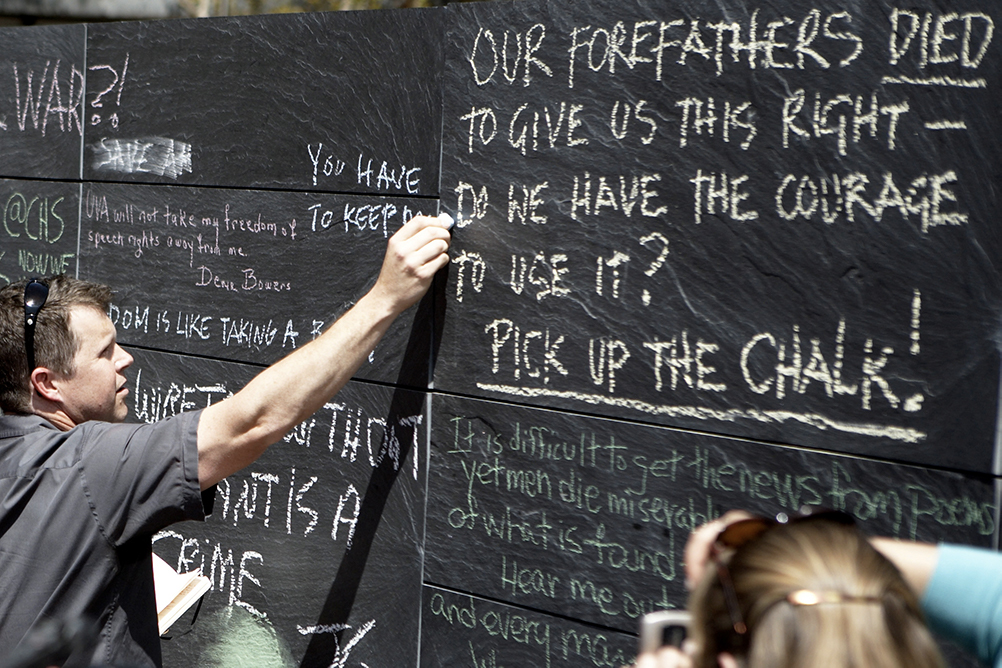 WAR?!
SAVE A
YOU HAVE
TO KEEP
@CHS
NOW WE
UVA will not take my freedom of
speech rights away from me.
Dena Bowers
DOM IS LIKE TAKING A
WIRET
THOUT
IS A
CRIME
OUR FOREFATHERS DIED
TO GIVE US THIS RIGHT —
DO WE HAVE THE COURAGE
TO USE IT?
PICK UP THE CHALK!
It is difficult to get the news from poems
yet men die miserably
of what is found
Hear me out
and every ma